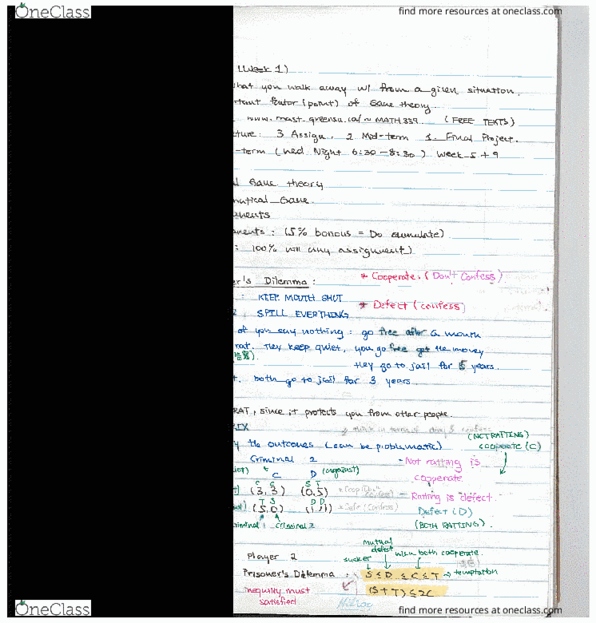 OneClass
find more resources at oneclass.com
(Week 1)
hat you walk away w/ from a given situation.
rtant factor (point) of Game theory.
(FREE TEXTS)
cture: 3 Assign. 2 Mid-term 1. Final Project.
-term (Wed Night 6:30-8:30) Week 5 + 9
l Game theory
matical Game.
onents
onents: (5% bonous = Do cumulate)
: 100% will any assignment)
er's Dilemma:
* Cooperate. (Don't Confess)
: KEEP MOUTH SHUT
* Defect (confess)
SPILL EVERYTHING
of you say nothing: go free after a month
rat. They keep quiet, you go free get the money
they go to jail for 5 years.
t. both go to jail for 3 years.
RAT, since it protects you from other people.
RIX
(NOT RATTING)
y the outcomes (can be problematic)
cooperate (C)
Criminal 2
- Not ratting is cooperate
C D (against)
C C S T
(3,3) (0,5)
- Ratting is defect
T S D D
(5,0) (1,1)
Defect (D)
(BOTH RATTING).
criminal 2
mutual defect
when both cooperate.
Player 2
sucker
Prisoner's Dilemma: S ≤ D ≤ C ≤ T → temptation
inequity must satisfied
(S+T) ≤ 2C
OneClass
find more resources at oneclass.com